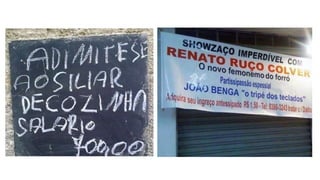 ADIMITESE
AOSILIAR
DECOZINHA
SALARIO
700,00
SHOWZAÇO IMPERDÍVEL COM
RENATO RUÇO COLVER
O novo femonemo do forró
Partissipassão espessial
JOÃO BENGA "o tripé dos teclados"
Adquira seu ingreço antessipado R$ 1,50 - Tel: